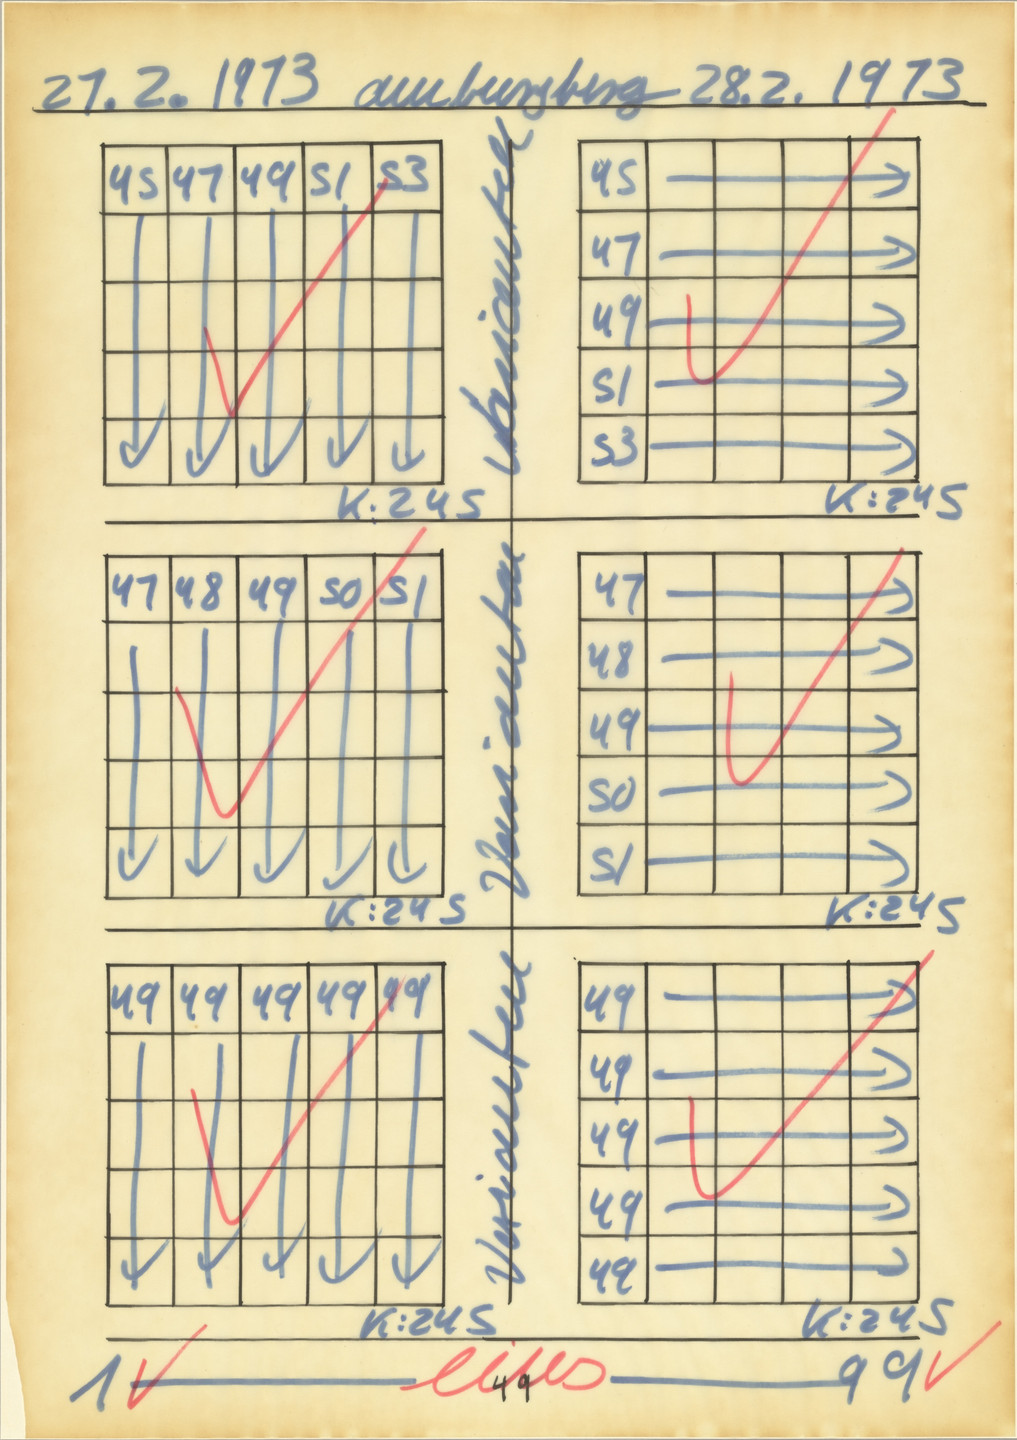 27. 2. 1973 amburgberg 28.2. 1973
45 47 49 51 53
45
47
49
51
53
Varianten
K:245 K:245
47 48 49 50 51
47
48
49
50
51
Varianten
K:245 K:245
49 49 49 49 49
49
49
49
49
49
Varianten
K:245 K:245
1 49 99